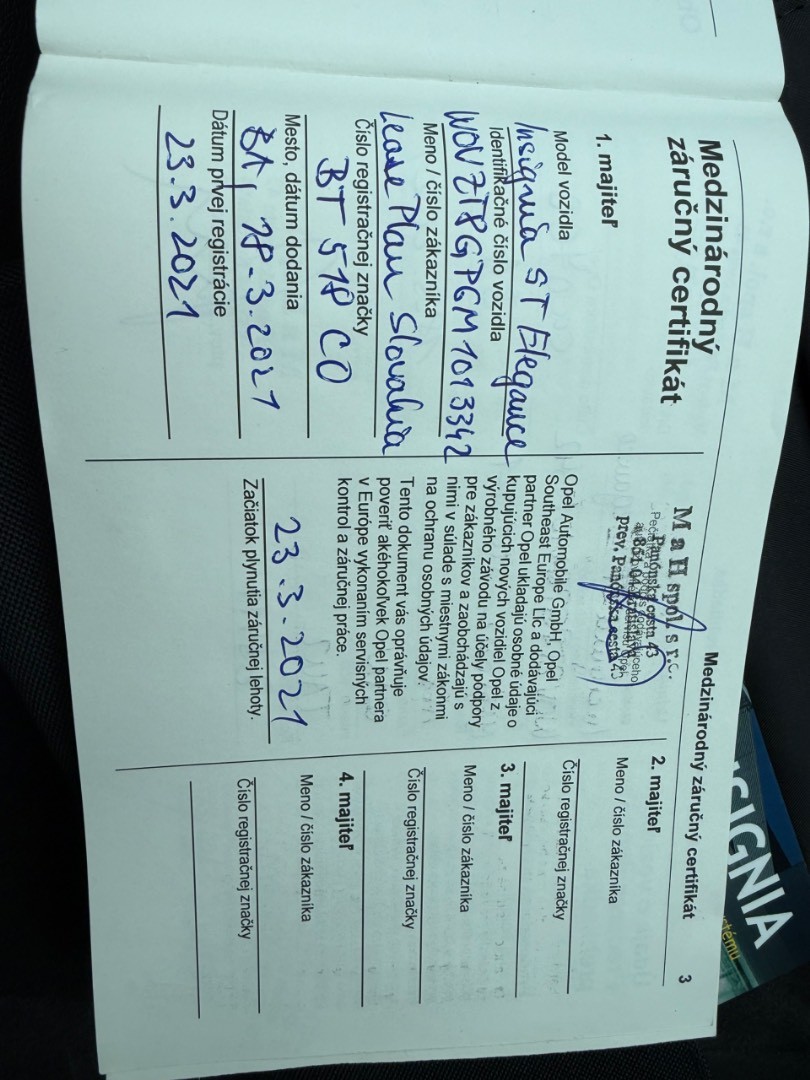 Medzinárodný záručný certifikát
3
Medzinárodný
záručný certifikát
1. majiteľ
Model vozidla
Insignia ST Elegance
Identifikačné číslo vozidla
W0VZT8GPGM1013342
Meno / číslo zákazníka
Lease Plan Slovakia
Číslo registračnej značky
BT 518 CO
Mesto, dátum dodania
BA, 18.3.2021
Dátum prvej registrácie
23.3.2021
MaH spol. s r.o.
Panónska cesta 43
851 04
prev. Panónska cesta 43
Opel Automobile GmbH, Opel
Southeast Europe Llc a dodávajúci
partner Opel ukladajú osobné údaje o
kupujúcich nových vozidiel Opel z
výrobného závodu na účely podpory
pre zákazníkov a zaobchádzajú s
nimi v súlade s miestnymi zákonmi
na ochranu osobných údajov.
Tento dokument vás oprávňuje
poveriť akéhokoľvek Opel partnera
v Európe vykonaním servisných
kontrol a záručnej práce.
23.3.2021
Začiatok plynutia záručnej lehoty.
2. majiteľ
Meno / číslo zákazníka
Číslo registračnej značky
3. majiteľ
Meno / číslo zákazníka
Číslo registračnej značky
4. majiteľ
Meno / číslo zákazníka
Číslo registračnej značky
SIGNIA